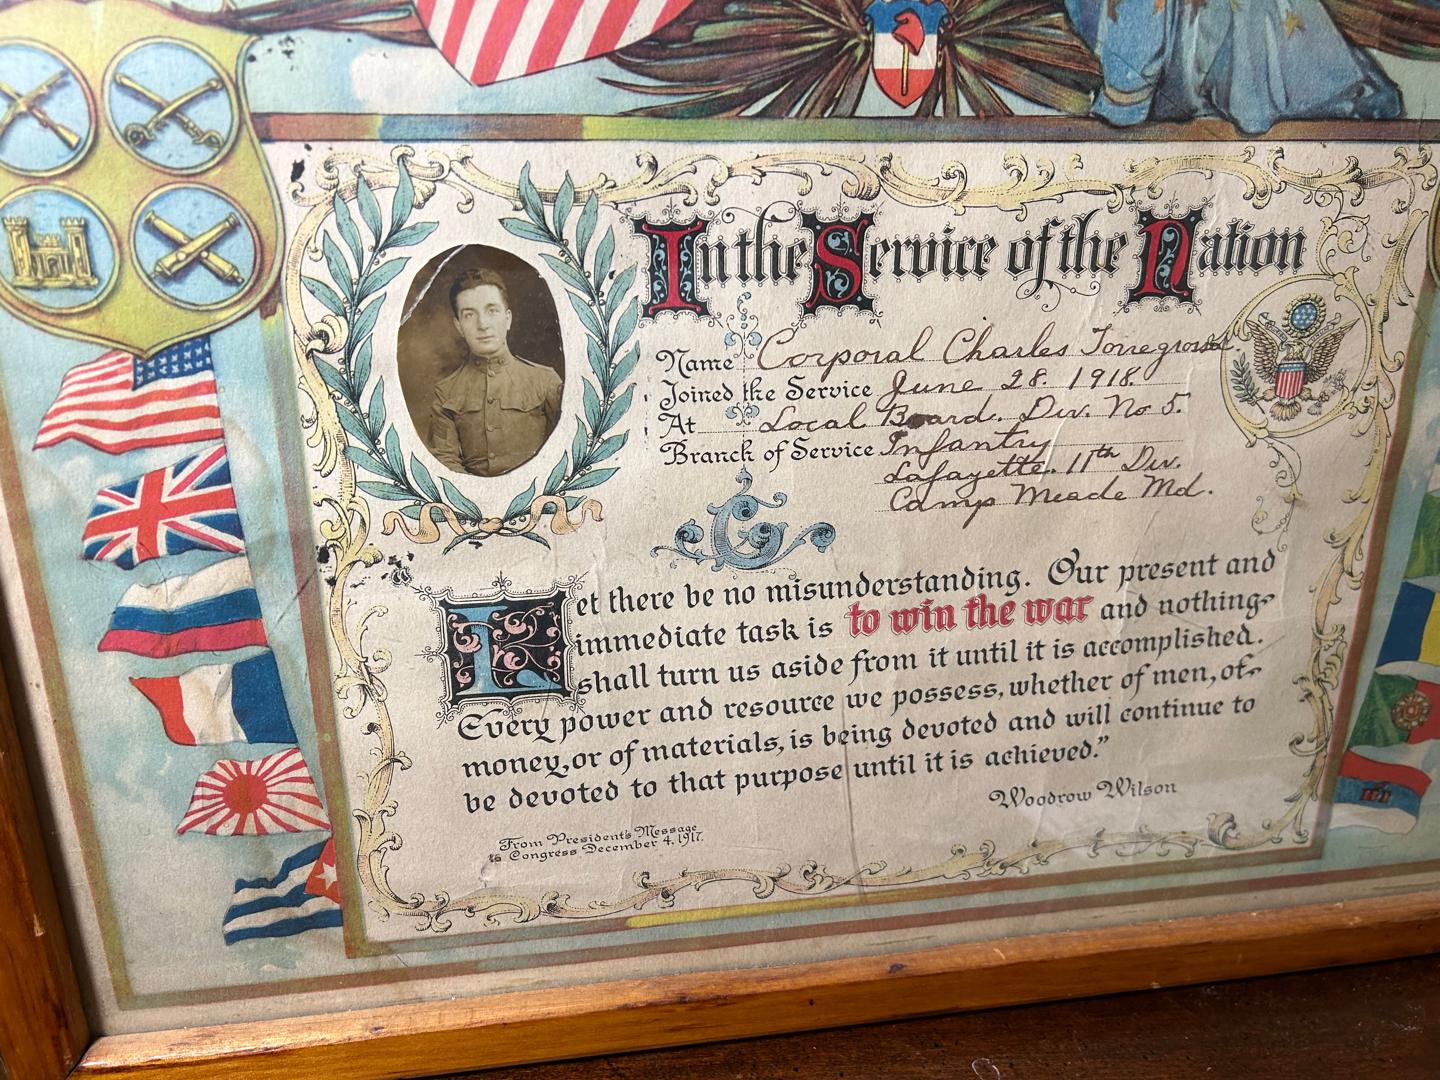 In the Service of the Nation
Name Corporal Charles Torregrossa
Joined the Service June 28. 1918.
At Local Board. Div. No 5.
Branch of Service Infantry
Lafayette. 11th Div.
Camp Meade Md.
Let there be no misunderstanding. Our present and
immediate task is to win the war and nothing
shall turn us aside from it until it is accomplished.
Every power and resource we possess, whether of men, of
money, or of materials, is being devoted and will continue to
be devoted to that purpose until it is achieved."
Woodrow Wilson
From President's Message
to Congress December 4, 1917.